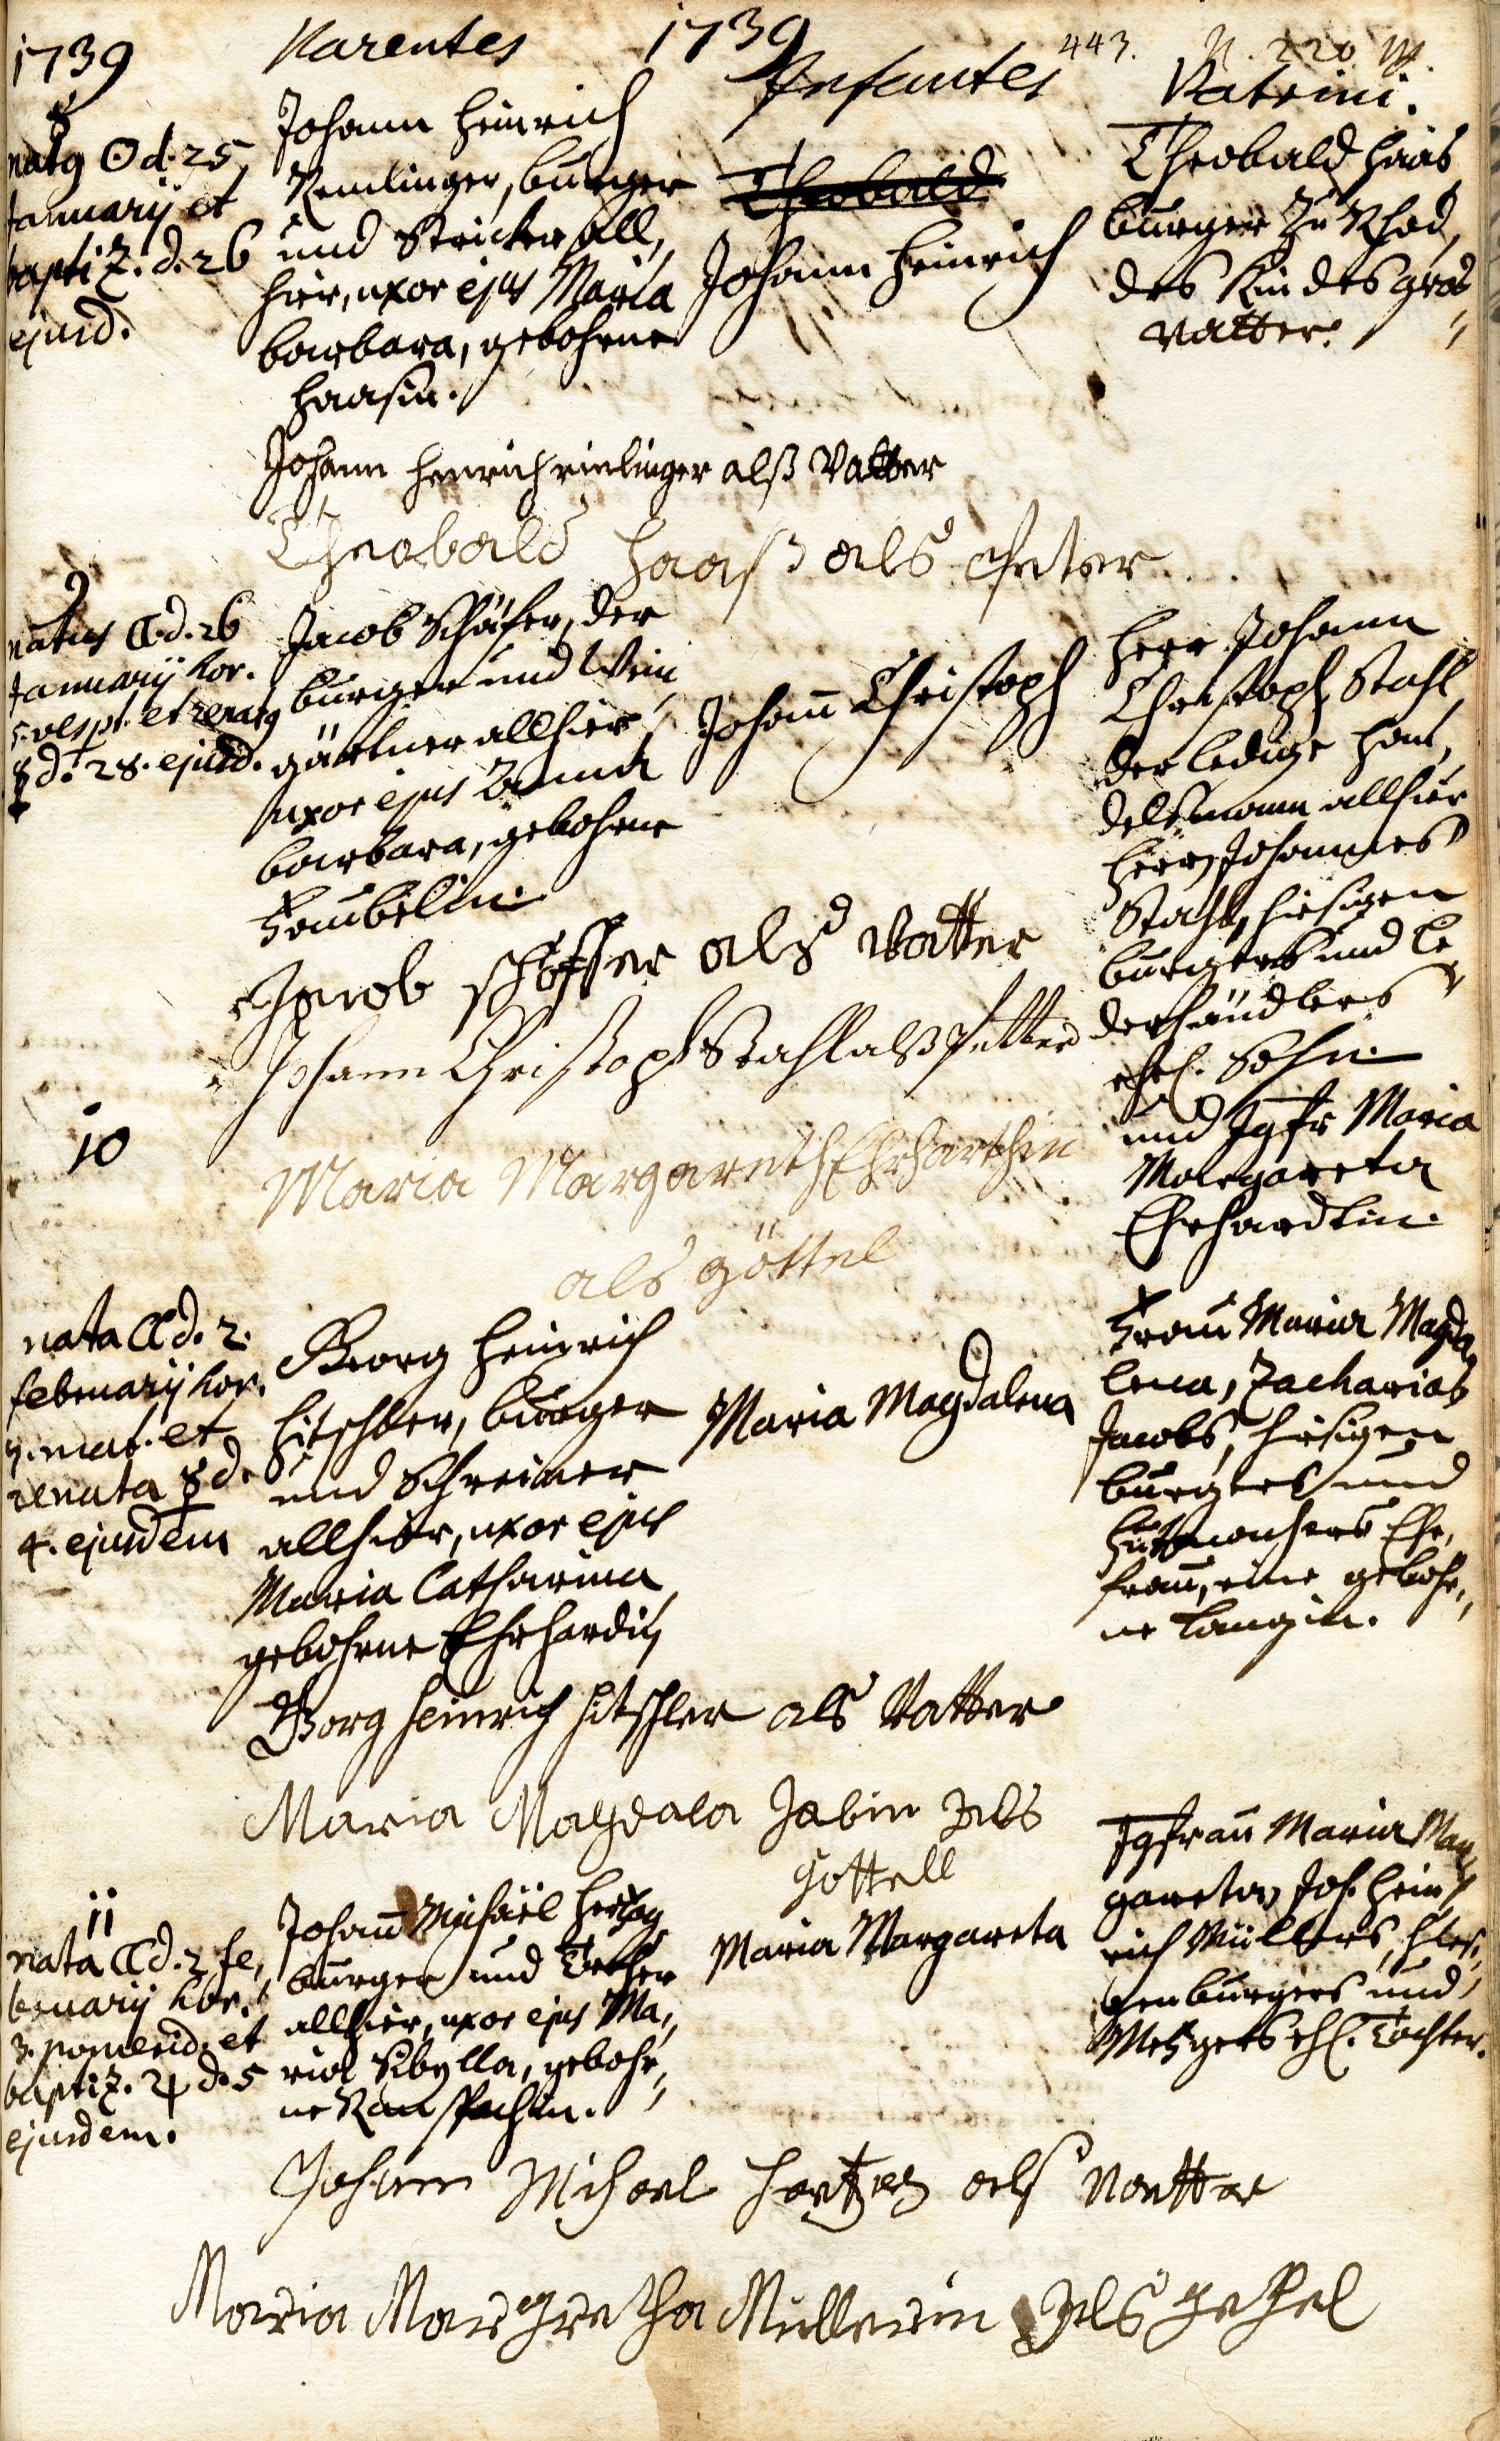 1739
Parentes
1739
Infantes
443.
N. 220
Patrini.
8
natg ☉ d. 25
January et
baptiz. d. 26
ejusd.
Johann Heinrich
Remlinger, burger
und Stricker all,
hier, uxor ejus Maria
barbara, gebohrne
Haasin.
Theobald
Johann Heinrich
Theobald Haas
burger zu Rhod,
des Kindes gros
Vatter.
Johann Henrich rimlinger alß Vatter
Theobald Haaß als Peter
9
natus ☾ d. 26
January hor.
5. vesp. et renatg
☿ d. 28. ejusd.
Jacob Schäfer, der
burger und Wein
gärtner allhier
uxor ejus Anna
barbara, gebohrne
Taubelin.
Johann Christoph
Herr Johann
Christoph Stahl
der ledige Han,
delsmann allhier
Herrn Johannes
Stahls, hiesigen
burgers und le
derhändlers
ehel. Sohn
und Jgfr Maria
Margareta
Ehrhardtin.
Jacob schöffer als Vatter
Johann Christoph Stahl alß Petter
Maria Margareth Ehrharthin
als göttel
10
nata ☾ d. 2.
february hor.
mat. et
renata ☿ d.
4. ejusdem
Georg Heinrich
Hitschler, burger
und Schreiner
allhier, uxor ejus
Maria Catharina
gebohrne Ehrhardin
Maria Magdalena
Frau Maria Magda
lena, Zacharias
Jacobs, hiesigen
burgers und
Hutmachers Ehe,
frau, eine gebohr,,
ne Langin.
Georg Heinrich Hitschler als Vatter
Maria Magdala Jabin als
Gottell
11
nata ☾ d. 2 fe,
bruary hor.
3. pomerid. et
baptiz. ♃ d. 5
ejusdem.
Johann Michäel Hertzog
burger und Becker
allhier, uxor ejus Ma,,
ria Sibylla, gebohr,,
ne Ranspachin.
Maria Margareta
Jgfrau Maria Mar
gareta, Joh. Hein
rich Müllers, hies,,
gen burgers und
Metzgers ehl. Tochter.
Johann Michael Hertzog als Vatter
Maria Margretha Müllerin als gehel